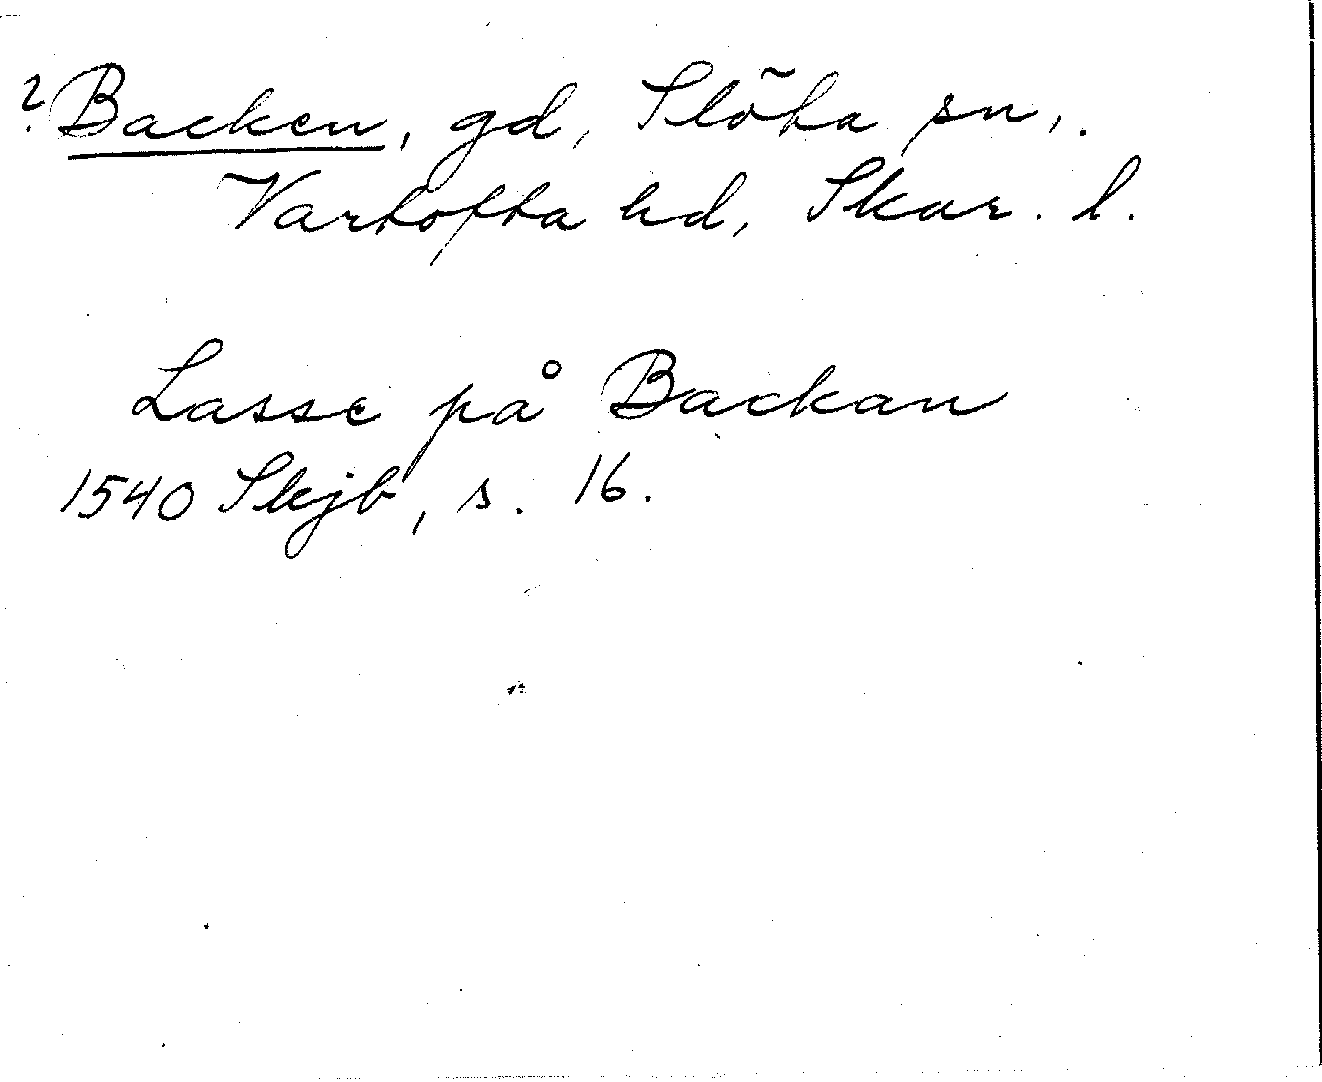 ? Backen, gd, Slöta sn,.
Vartofta hd, Skar. l.
Lasse på Backan
1540 Skjb, s. 16.